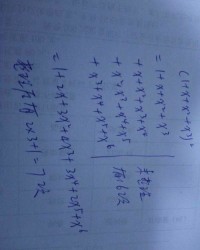 (1+x+x²+x³)²
=1+x+x²+x³
+x+x²+x³+x⁴
+x²+x³+x⁴+x⁵
+x³+x⁴+x⁵+x⁶
有16
=1+2x+3x²+4x³+3x⁴+2x⁵+x⁶
有 2×3+1=7